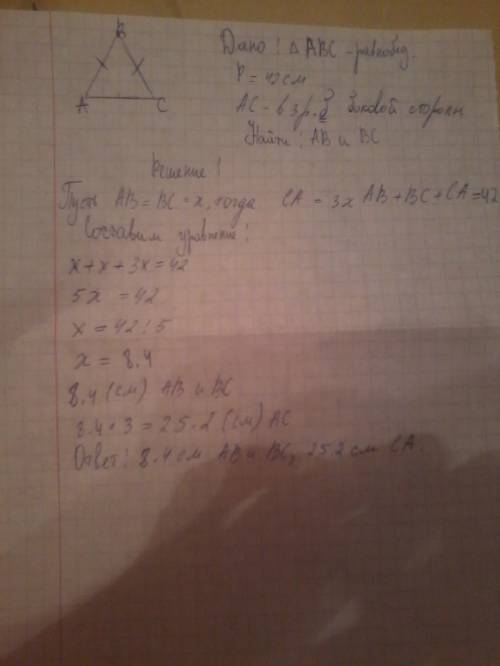 B
A C
Дано: △ ABC - равнобед.
P = 42 см
AC - в 3 р. боковой стороны
Найти: AB и BC
Решение!
Пусть AB = BC = x, тогда CA = 3x AB + BC + CA = 42
Составим уравнение!
x + x + 3x = 42
5x = 42
x = 42 : 5
x = 8.4
8.4 (см) AB и BC
8.4 · 3 = 25.2 (см) AC
Ответ: 8.4 см AB и BC, 25.2 см CA.